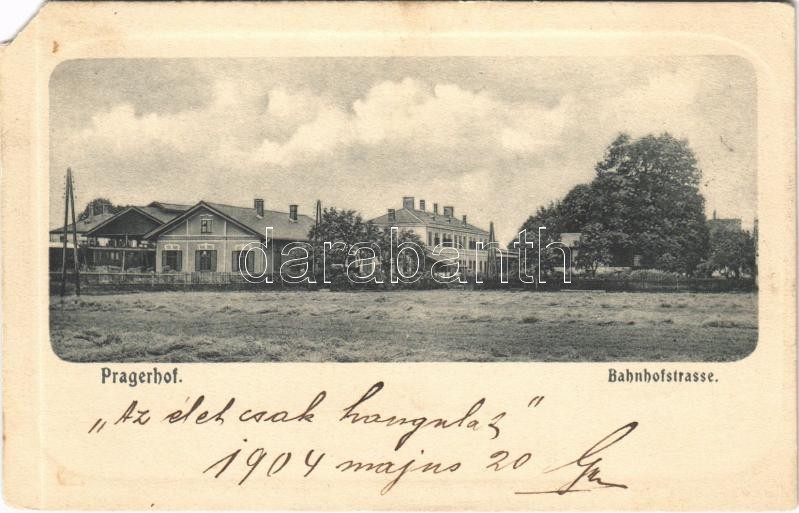 darabanth
Pragerhof. Bahnhofstrasse.
„Az élet csak hangulat"
1904 majus 20